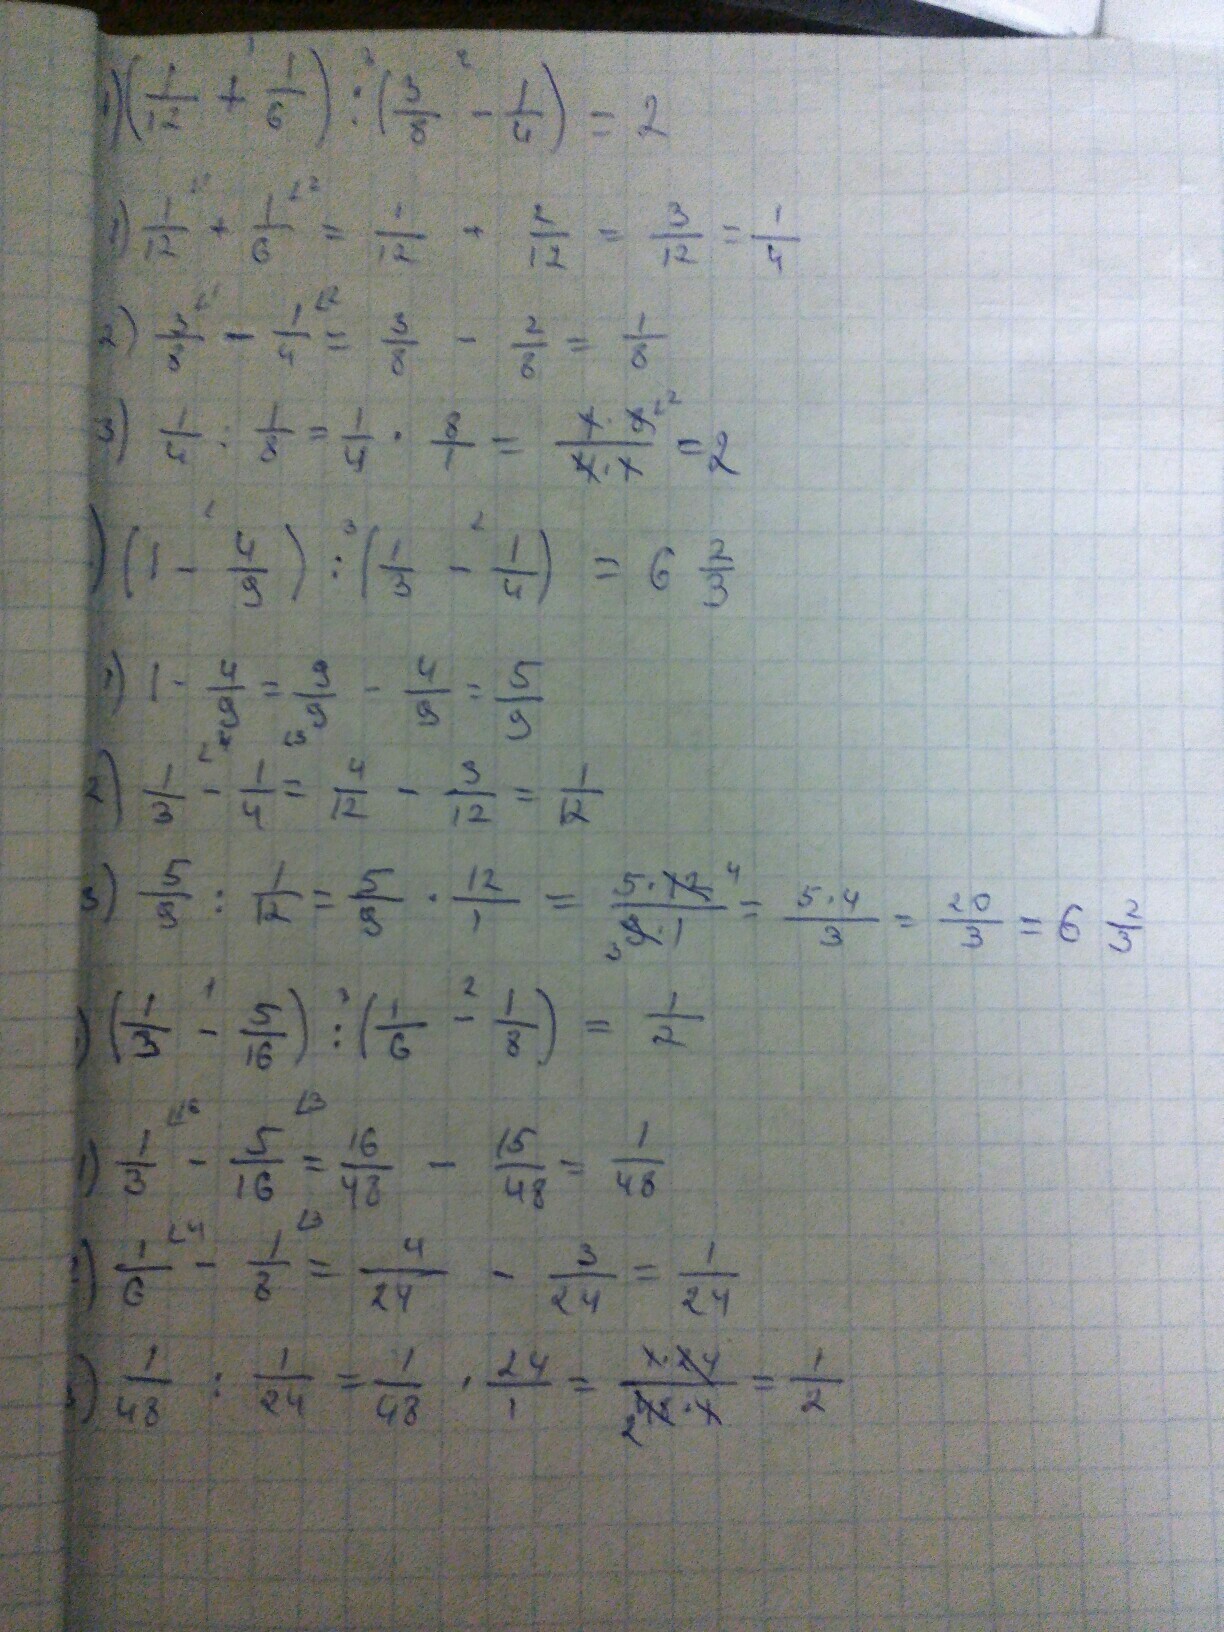 (1/12 + 1/6) : (3/8 - 1/4) = 2
1) 1/12 + 1/6 = 1/12 + 2/12 = 3/12 = 1/4
2) 3/8 - 1/4 = 3/8 - 2/8 = 1/8
3) 1/4 : 1/8 = 1/4 · 8/1 = 1·8/4·1 = 2
(1 - 4/9) : (1/3 - 1/4) = 6 2/3
1) 1 - 4/9 = 9/9 - 4/9 = 5/9
2) 1/3 - 1/4 = 4/12 - 3/12 = 1/12
3) 5/9 : 1/12 = 5/9 · 12/1 = 5·12/9·1 = 5·4/3 = 20/3 = 6 2/3
(1/3 - 5/16) : (1/6 - 1/8) = 1/2
1) 1/3 - 5/16 = 16/48 - 15/48 = 1/48
2) 1/6 - 1/8 = 4/24 - 3/24 = 1/24
3) 1/48 : 1/24 = 1/48 · 24/1 = 1·24/48·1 = 1/2